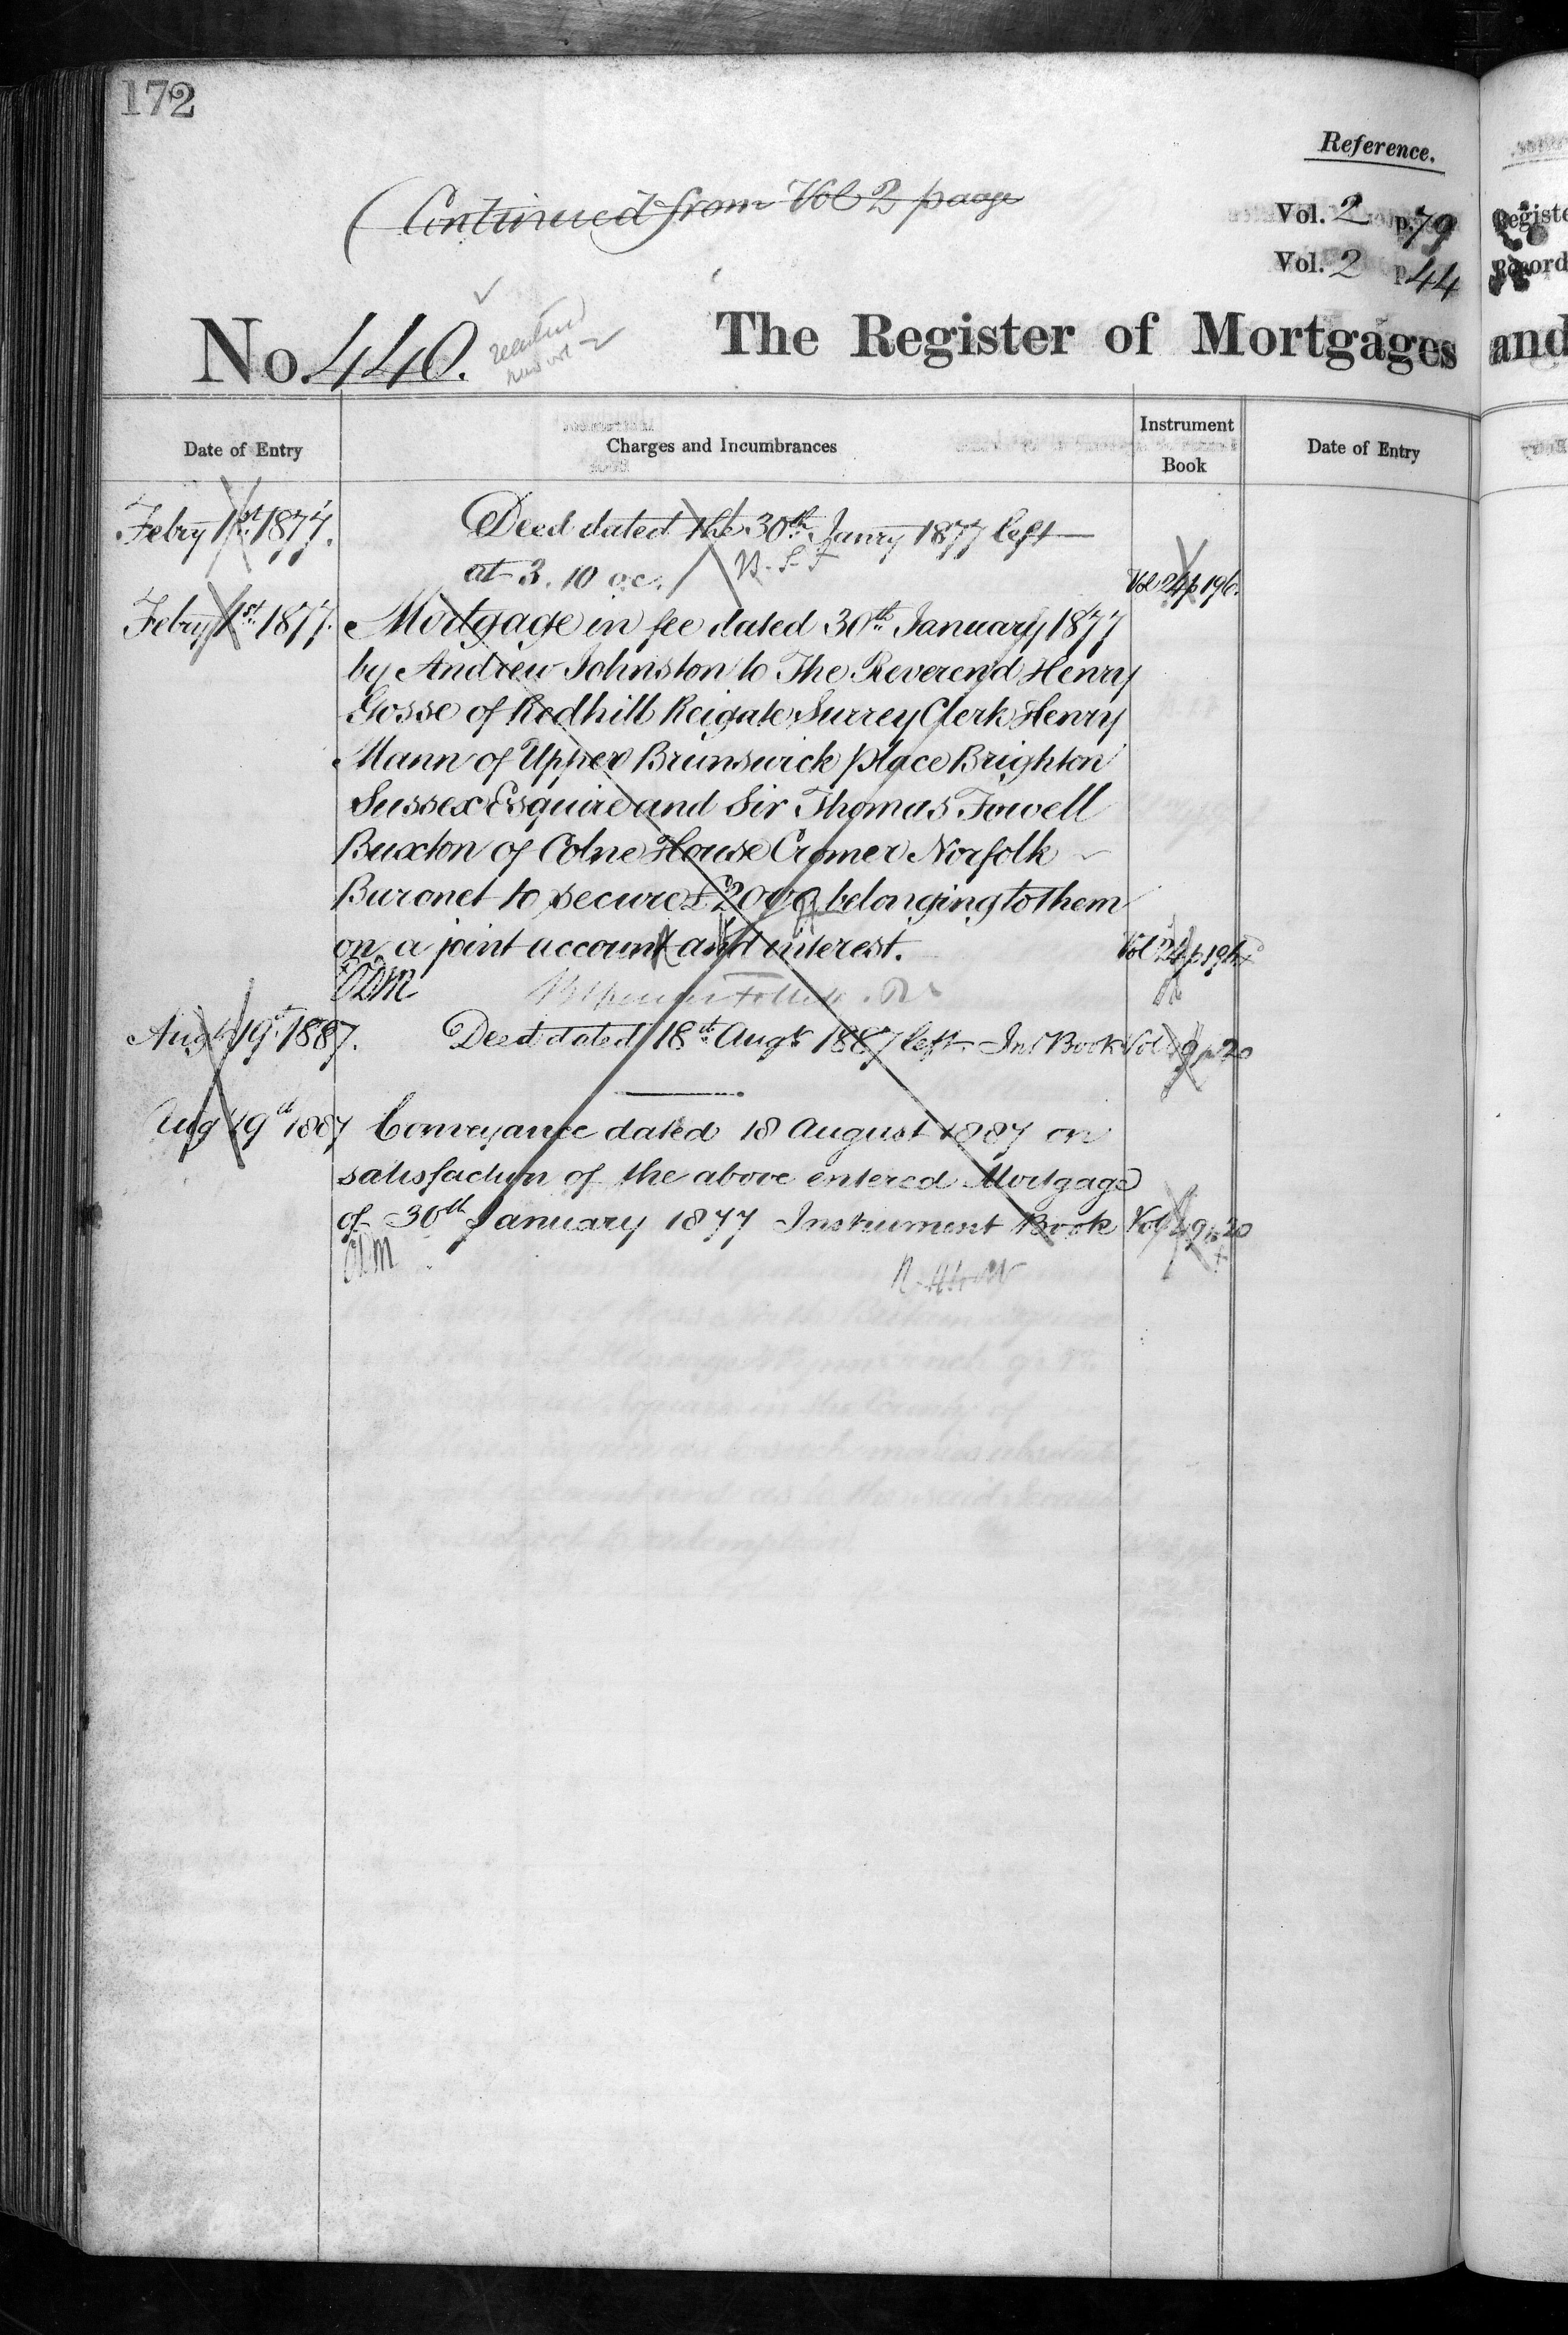 172
Reference.
(Continued from Vol 2 paage
Vol. 2 p. 79
Vol. 2 p. 44
No. 440.
The Register of Mortgages and
Date of Entry
Charges and Incumbrances
Instrument Book
Date of Entry
Febry 1st 1877.
Deed dated the 30th Janry 1877 left
at 3.10 oc.
Vol 24 p 196.
Febry 1st 1877.
Mortgage in fee dated 30th January 1877
by Andrew Johnston to The Reverend Henry
Gosse of Redhill Reigate Surrey Clerk Henry
Mann of Upper Brunswick place Brighton
Sussex Esquire and Sir Thomas Fowell
Buxton of Colne House Cromer Norfolk
Baronet to secure £2000 belonging to them
on a joint account and interest.
Vol 24 p 196
Augt 19th 1887.
Deed dated 18th Augt 1887 left Inst Book
Vol 49 p 20
Aug 19th 1887
Conveyance dated 18 August 1887 on
satisfaction of the above entered Mortgage
of 30th January 1877 Instrument Book
Vol 49 p 20